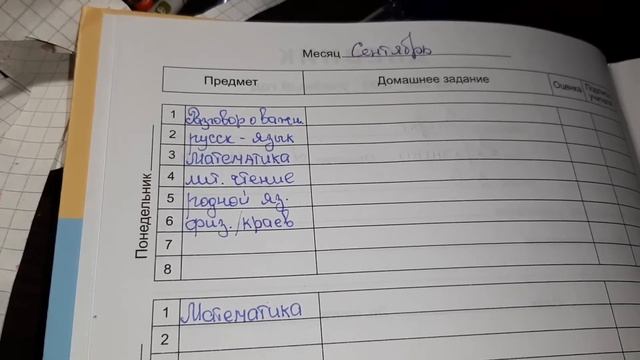 Месяц Сентябрь
Предмет Домашнее задание Оценка Подпись учителя
Понедельник
1 Разговор о важн
2 русск - язык
3 Математика
4 лит. чтение
5 родной яз.
6 физ./краев
7
8
1 Математика
2